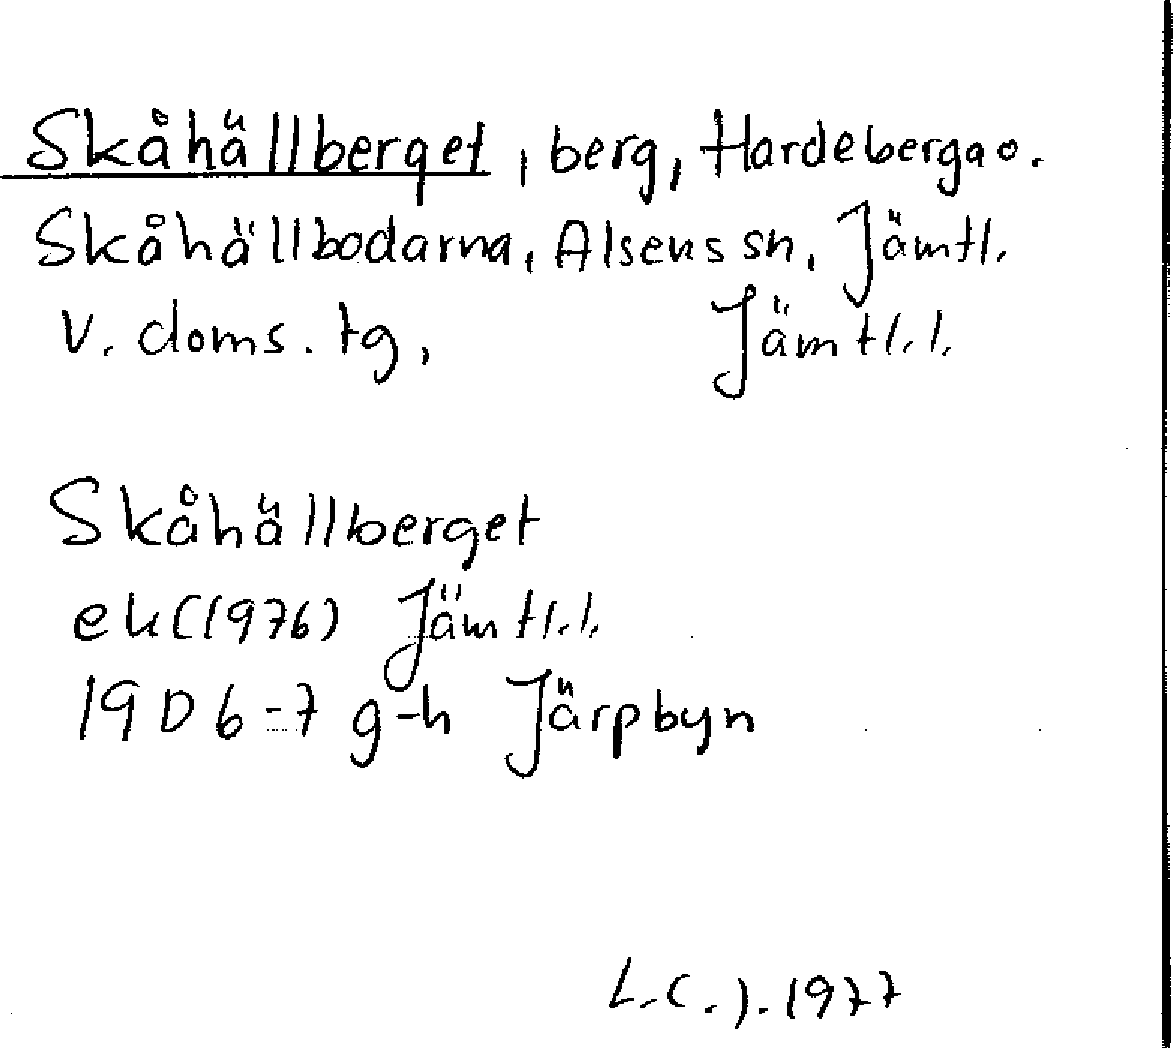 Skåhällberget, berg, Hardeberga o.
Skåhällbodarna, Alsens sn, Jämtl.
v. doms. tg, Jämtl. l.
Skåhällberget
ek (1976) Jämtl. l.
19 D 6-7 g-h Järpbyn
L.C.J. 1977